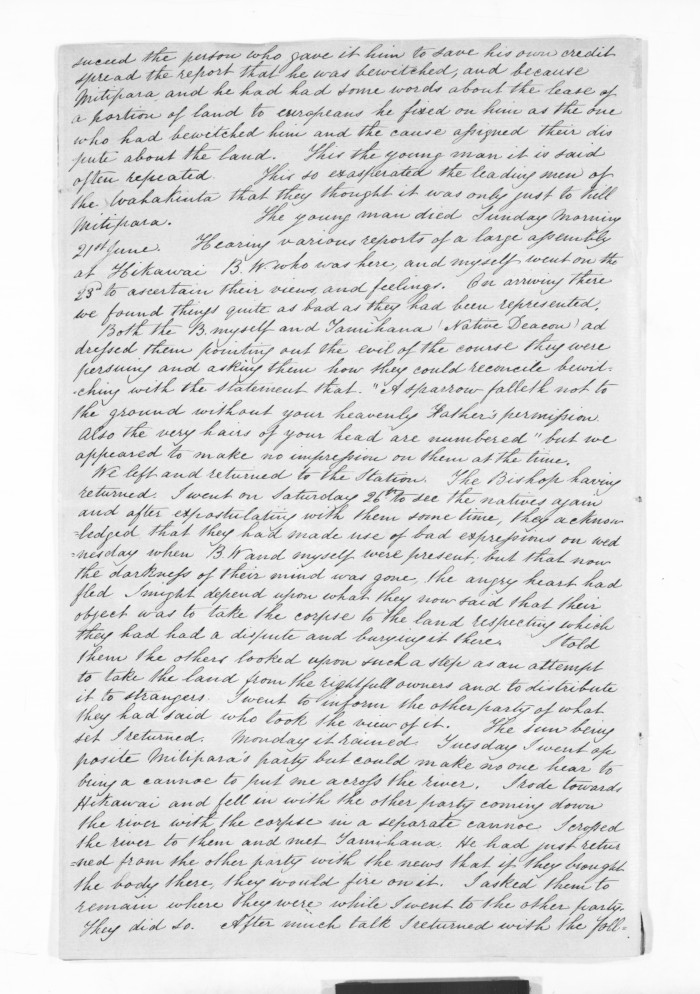 succeed the person who gave it him to save his own credit
spread the report that he was bewitched, and because
Mitipara and he had had some words about the lease of
a portion of land to europeans he fixed on him as the one
who had bewitched him and the cause assigned their dis
pute about the land. This the young man it is said
often repeated This so exasperated the leading men of
the that they thought it was only just to kill
Mitipara. The young man died Sunday Morning
21st June. Hearing various reports of a large assembly
at Hikawai B. W who was here, and myself went on the
23d to ascertain their views and feelings. On arriving there
we found things quite as bad as they had been represented.
Both the B. myself and Tamihana (Native Deacon) ad
dressed them pointing out the evil of the course they were
persuing and asking them how they could reconcile bewit-
-ching with the statement that. "A sparrow falleth not to
the ground without your heavenly Father's permission
Also the very hairs of your head are numbered" but we
appeared to make no impression on them at the time.
We left and returned to the Station. The Bishop having
returned. I went on Saturday 26th to see the natives again
and after expostulating with them some time, they acknow-
-ledged that they had made use of bad expressions on wed
-nesday when B. W and myself were present, but that now
the darkness of their mind was gone, the angry heart had
fled I might depend upon what they now said that their
object was to take the corpse to the land respecting which
they had had a dispute and burying it there. I told
them the others looked upon such a step as an attempt
to take the land from the rightfull owners and to distribute
it to strangers. I went to inform the other party of what
they had said who took the view of it. The sun being
set I returned. Monday it rained. Tuesday I went op
posite Mitipara's party but could make no one hear to
being a cannoe to put me across the river. I rode towards
Hikawai and fell in with the other party coming down
the river with the corpse in a separate cannoe. I crossed
the river to them and met Tamihana. He had just retur
-ned from the other party with the news that if they brought
the body there, they would fire on it. I asked them to
remain where they were while I went to the other party.
They did so. After much talk I returned with the foll-